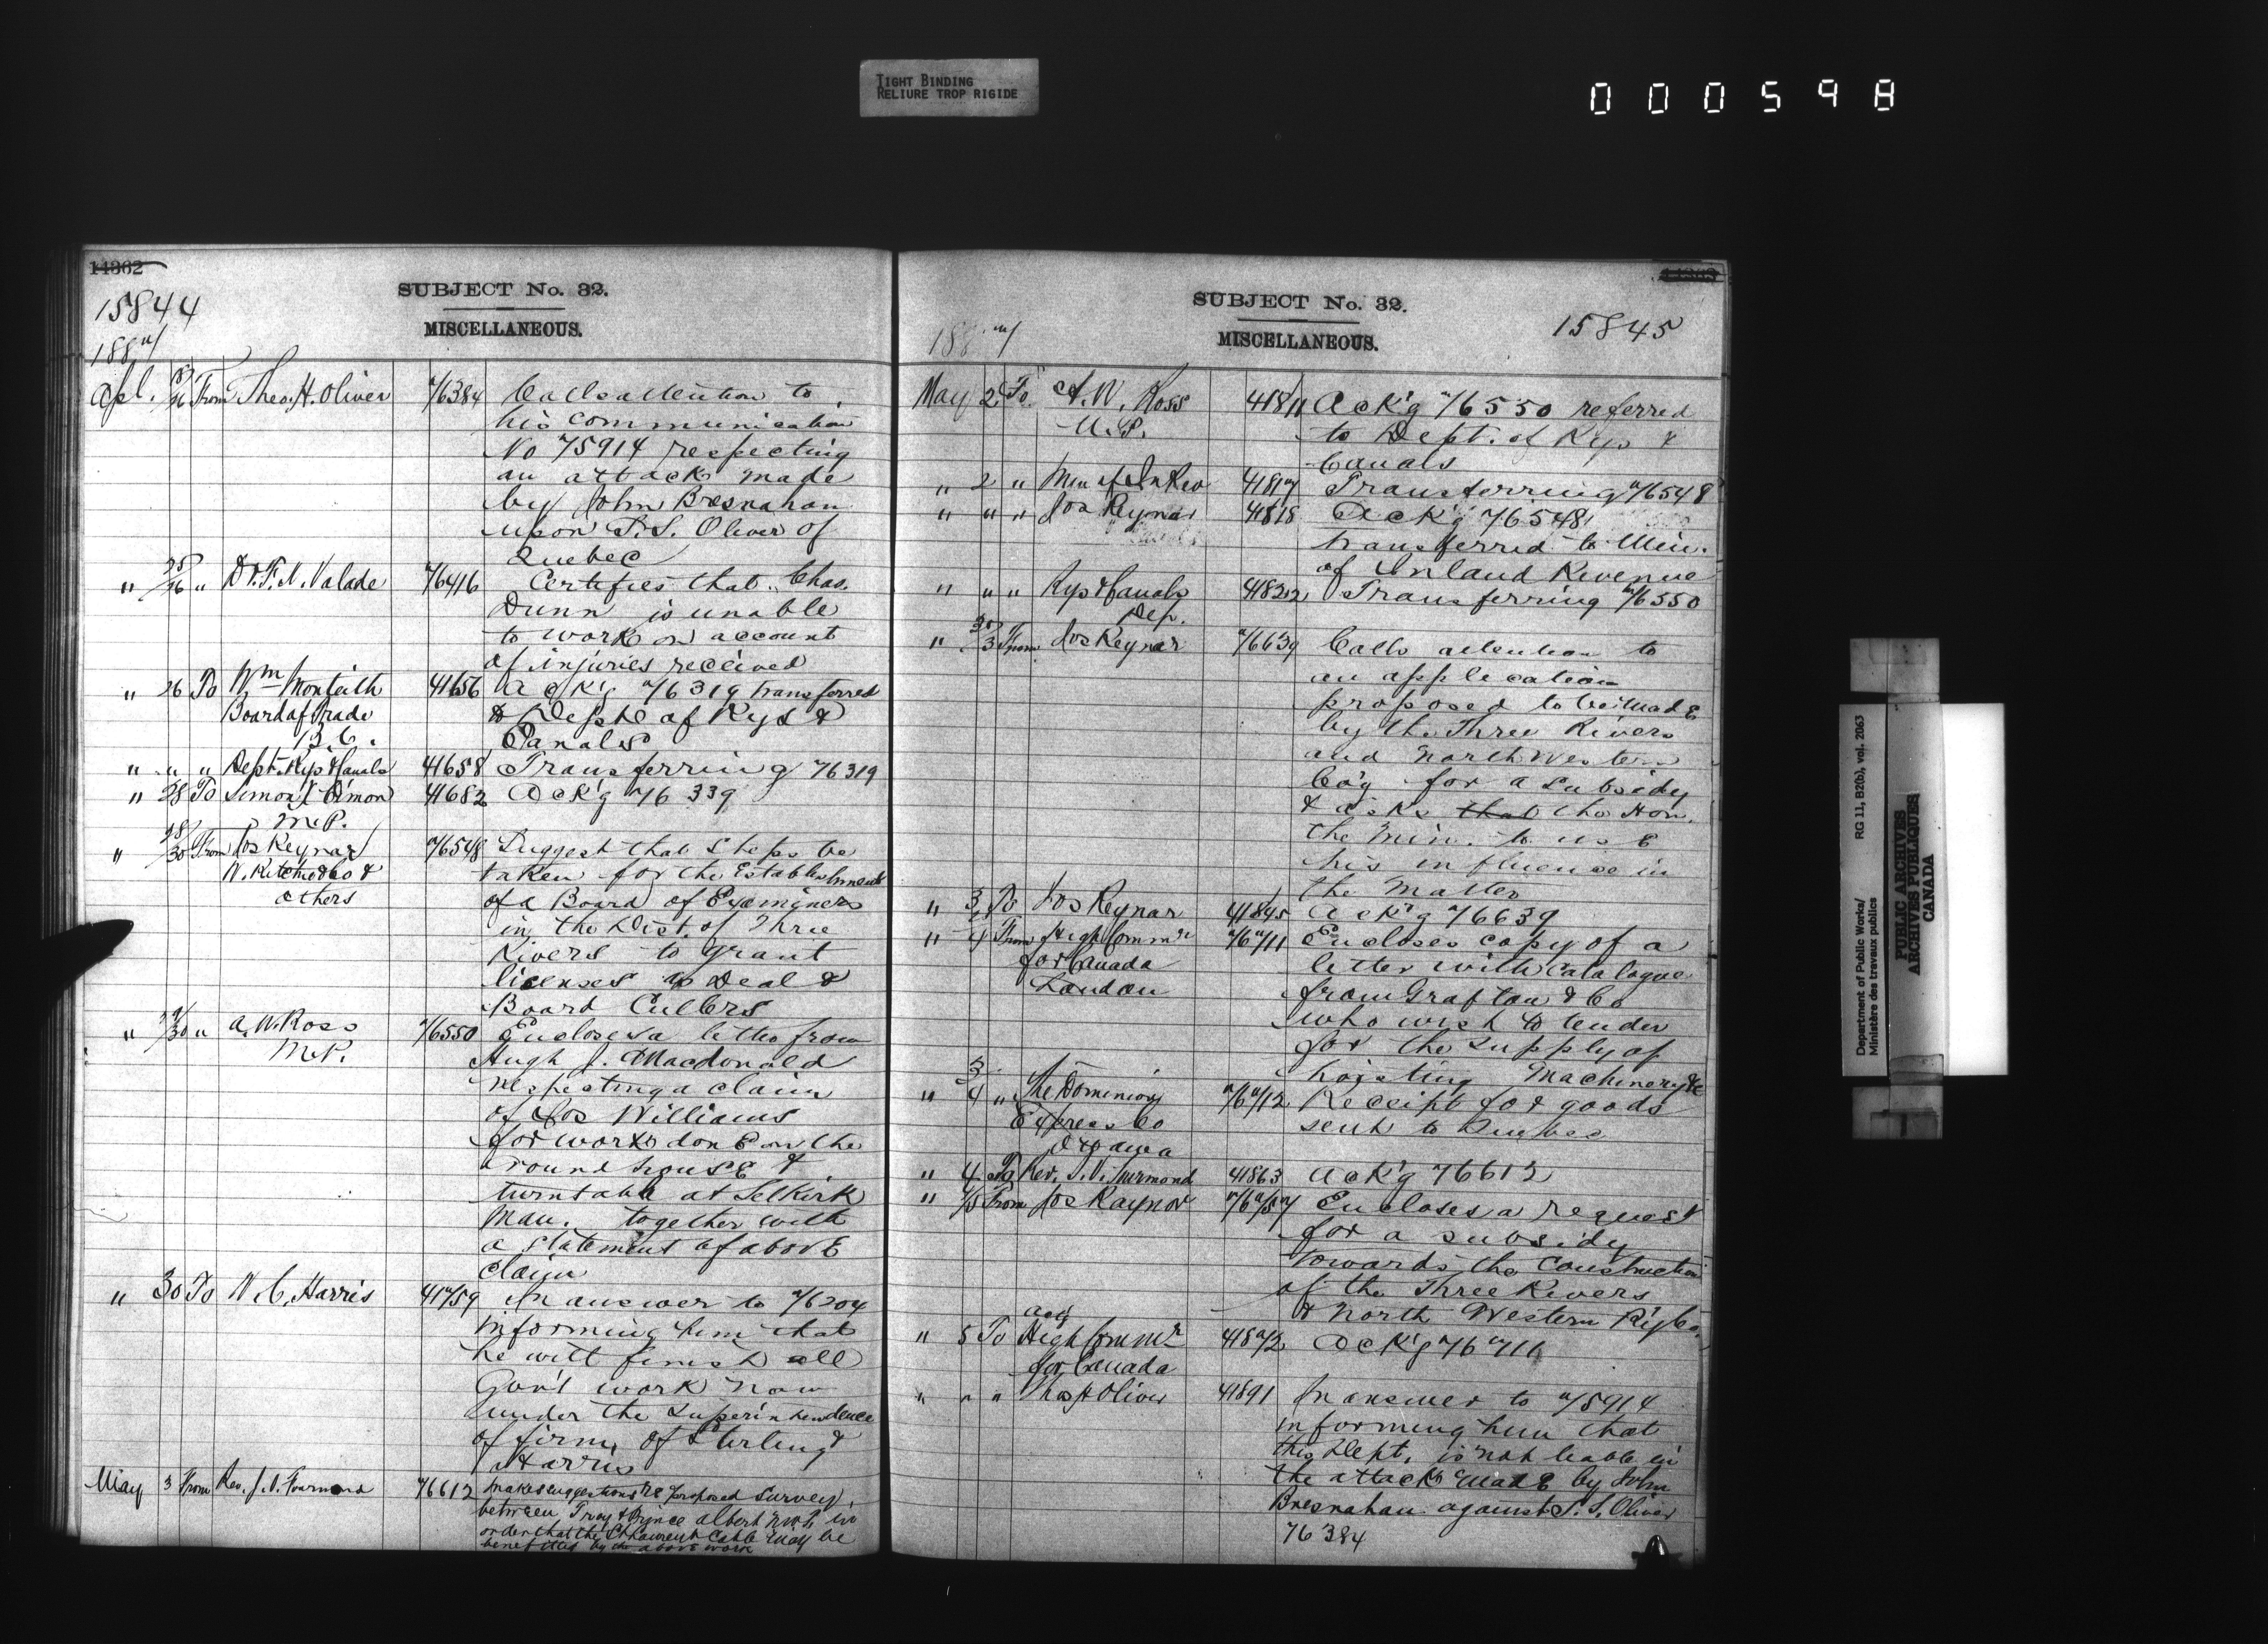 TIGHT BINDING
RELIURE TROP RIGIDE
000598
14362
15844
1887
SUBJECT No. 32.
MISCELLANEOUS.
Apl. 26 From Theo. H. Oliver 76384 Calls attention to
his communication
No 75914 respecting
an attack made
by John Bresnahan
upon T. S. Oliver of
Quebec
" 25/26 " Dr. F. X. Valade 76416 Certifies that Chas.
Dunn is unable
to work on account
of injuries received
" 26 To Wm Monteith 41656 Ack'g 76319 transferred
Board of Trade to Dept. of Rys &
B.C. Canals
" " " Dept. Rys & Canals 41658 Transferring 76319
" 28 To Simon X Cimon 41682 Ack'g 76339
M.P.
" 28/30 From Jos Reynar 76548 Suggest that Steps be
W. Ritchie & Co & taken for the Establishment
others of a Board of Examiners
in the Dist. of Three
Rivers to grant
licenses to Deal &
Board Cullers
" 29/30 " A. W. Ross 76550 Encloses a letter from
M.P. Hugh J. Macdonald
respecting a claim
of Jos Williams
for works done on the
round house &
turntable at Selkirk
Man. together with
a statement of above
claim
" 30 To W. C. Harris 41759 In answer to 76204
informing him that
he will finish all
Gov't work now
under the Superintendence
of firm of Sterling &
Harris
May 3 From Rev. J. V. Fourmond 76612 makes suggestions re proposed survey,
between Troy & Prince Albert N.W.T. in
order that the St Laurent Cable may be
benefitted by the above work
SUBJECT No. 32.
MISCELLANEOUS.
15845
1887
May 2 To A. W. Ross 41811 Ack'g 76550 referred
M.P. to Dept. of Rys &
Canals
" 2 " Min of In Rev 41817 Transferring 76548
" " " Jos Reynar 41818 Ack'g 76548
transferred to Min.
of Inland Revenue
" " " Rys & Canals 41822 Transferring 76550
Dep.
" 30/3 From Jos Reynar 76639 Calls attention to
an application
proposed to be made
by the Three Rivers
and North Western
Co'y for a Subsidy
& asks that the Hon.
the Min. to use
his influence in
the matter
" 3 To Jos Reynar 41845 Ack'g 76639
" 4 From High Commr 76711 Encloses copy of a
for Canada letter with Catalogue
London from Grafton & Co
who wish to tender
for the supply of
hoisting Machinery &c
" 3/4 " The Dominion 76712 Receipt for goods
Express Co sent to Quebec
Ottawa
" 4 To Rev. J. V. Fourmond 41863 Ack'g 76612
" 4/5 From Jos Raynor 76757 Encloses a request
for a subsidy
towards the construction
of the Three Rivers
& North Western Ry Co.
acty
" 5 To High Commr 41872 Ack'g 76711
for Canada
" " " Theo H Oliver 41891 In answer to 75914
informing him that
this Dept. is not liable in
the attack made by John
Bresnahan against T. S. Oliver
76384
Department of Public Works/ RG 11, B2(b), vol. 2063
Ministère des travaux publics
PUBLIC ARCHIVES
ARCHIVES PUBLIQUES
CANADA